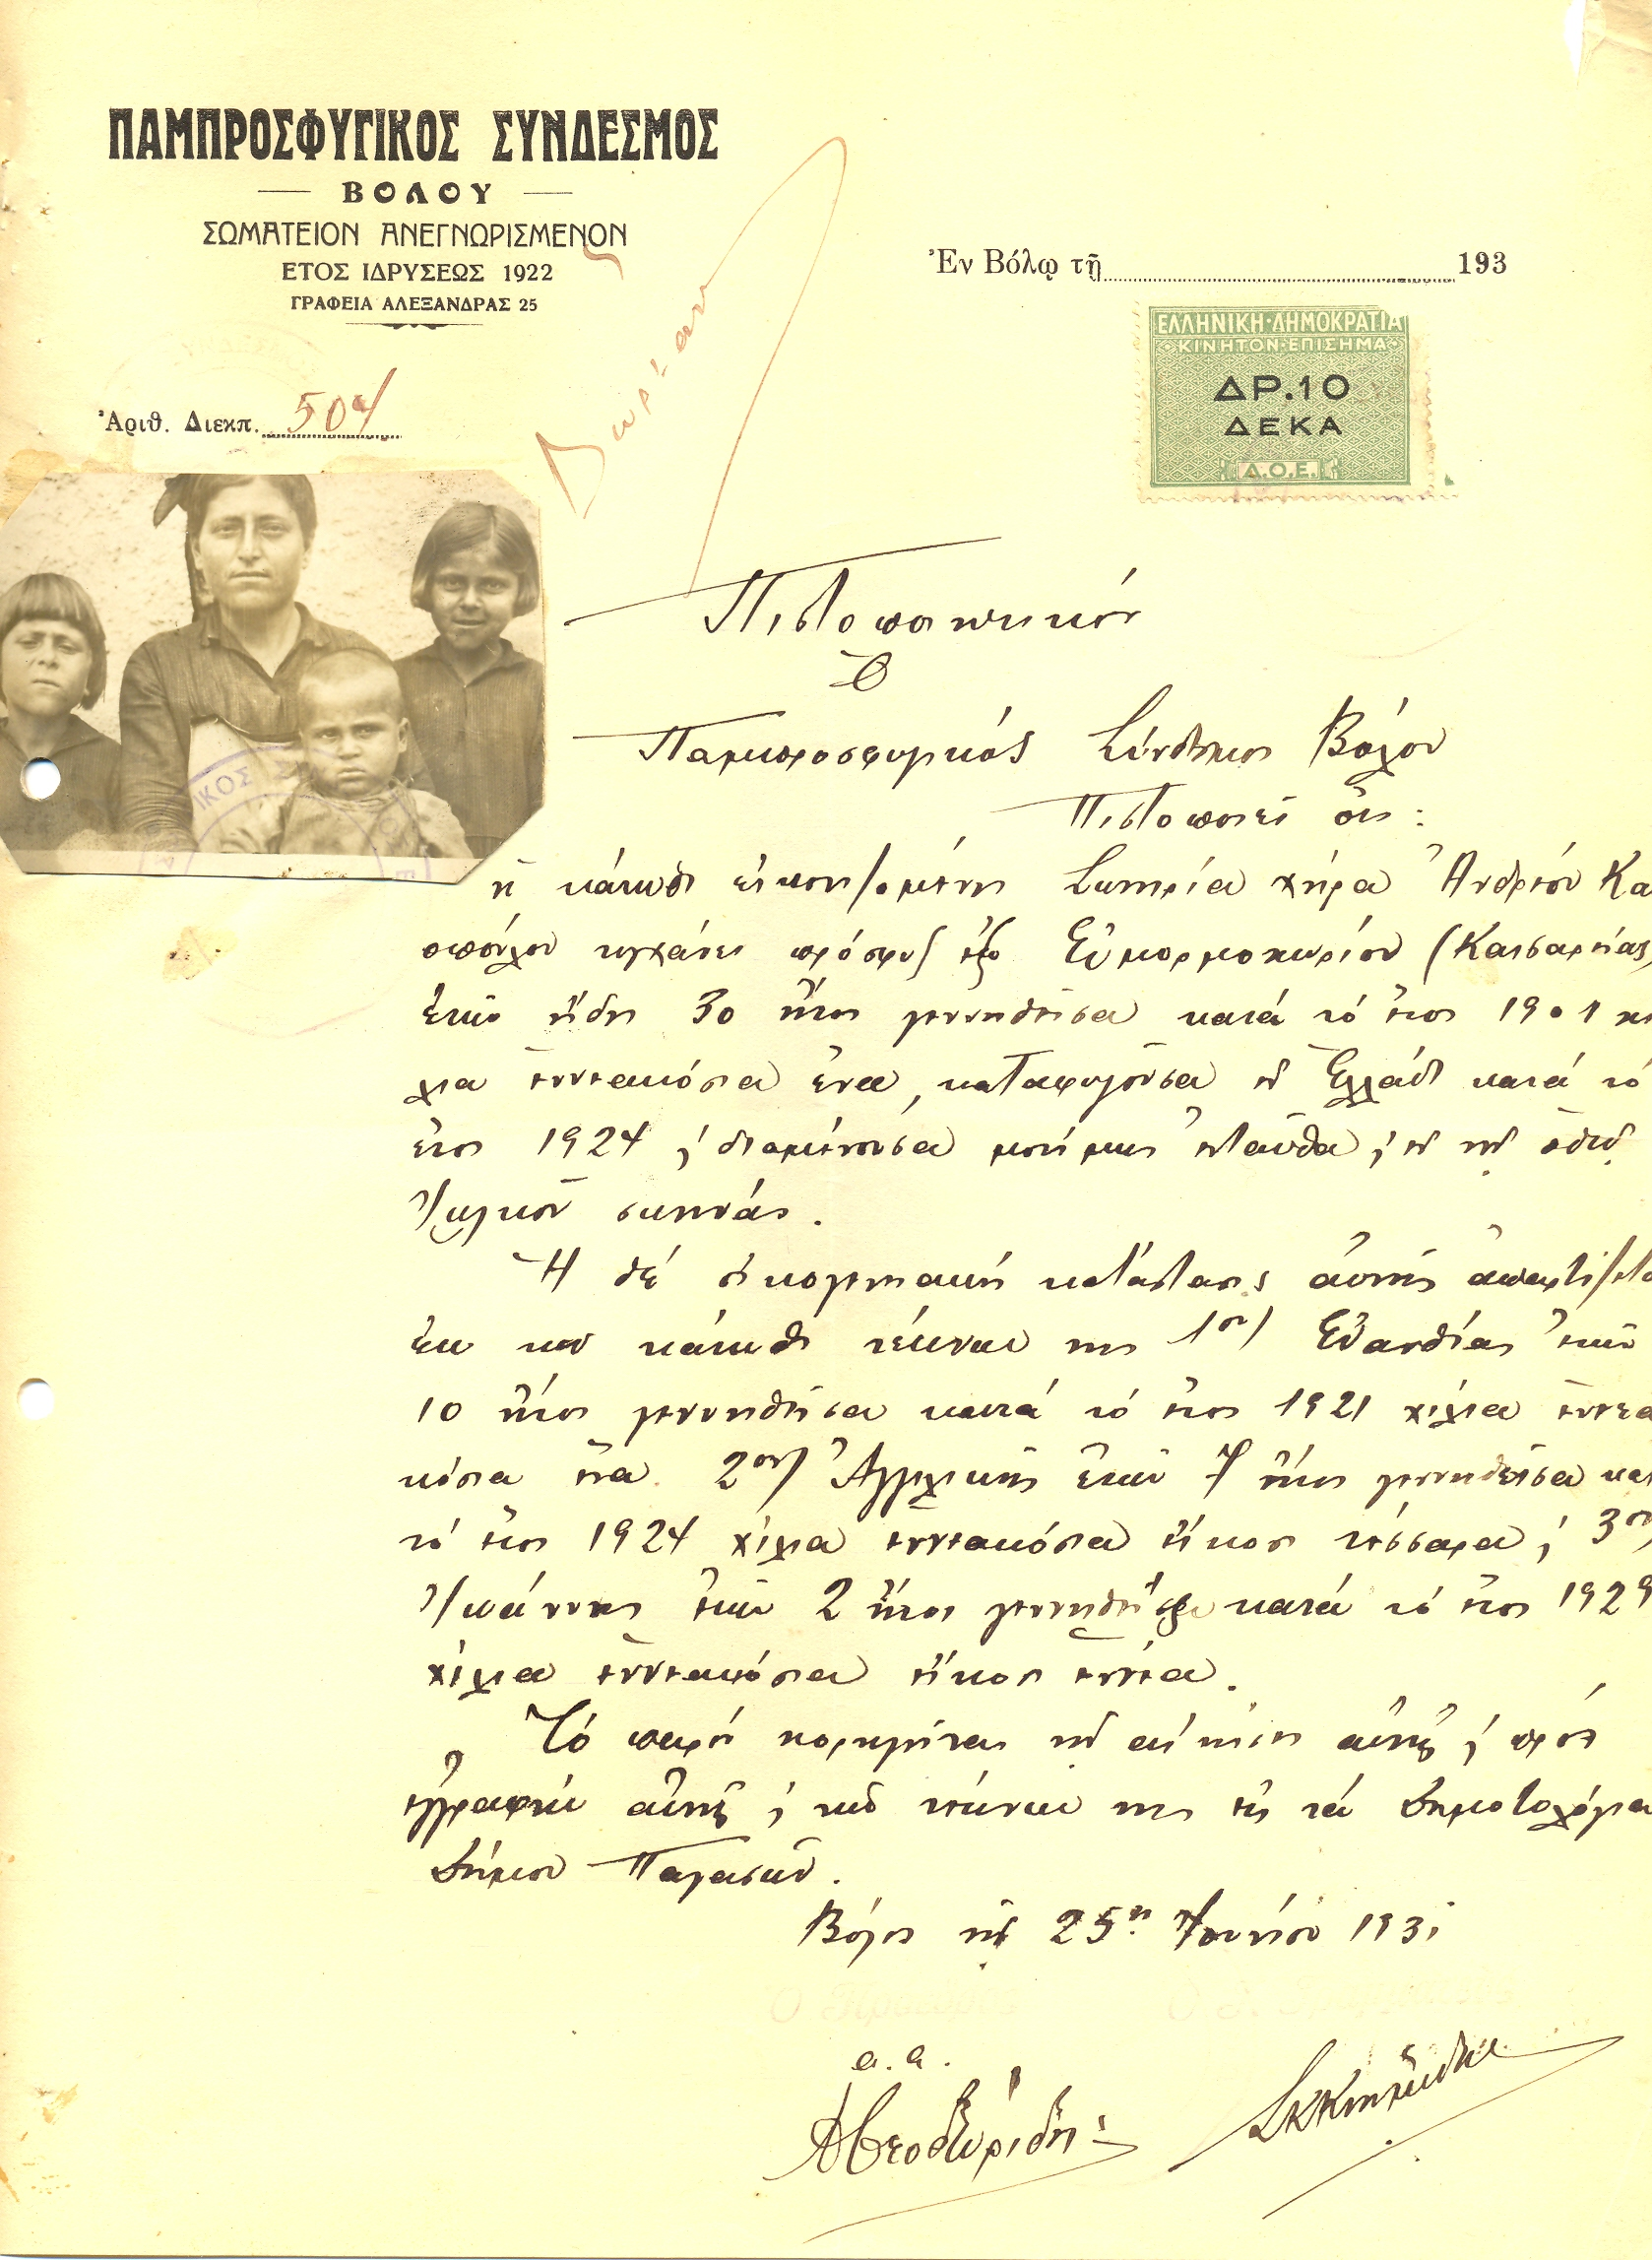 ΠΑΜΠΡΟΣΦΥΓΙΚΟΣ ΣΥΝΔΕΣΜΟΣ
ΒΟΛΟΥ
ΣΩΜΑΤΕΙΟΝ ΑΝΕΓΝΩΡΙΣΜΕΝΟΝ
ΕΤΟΣ ΙΔΡΥΣΕΩΣ 1922
ΓΡΑΦΕΙΑ ΑΛΕΞΑΝΔΡΑΣ 25
Ἐν Βόλῳ τῇ 193
ΕΛΛΗΝΙΚΗ·ΔΗΜΟΚΡΑΤΙΑ
ΚΙΝΗΤΟΝ·ΕΠΙΣΗΜΑ
ΔΡ.10
ΔΕΚΑ
Δ.Ο.Ε.
Ἀριθ. Διεκπ. 504
Δωρεάν
Πιστοποιητικόν
Ὁ
Παμπροσφυγικός Σύνδεσμος Βόλου
Πιστοποιεῖ ὅτι:
ἡ κάτωθι εἰκονιζομένη Σωτηρία χήρα Ἀνδρέου Κα
οπούλου τυγχάνει πρόσφυξ ἐξ (Καισαρείας)
ἐτῶν ἤδη 30 ἤτοι γεννηθεῖσα κατά τό ἔτος 1901 χί
λια ἐννεακόσια ἕνα, καταφυγοῦσα ἐν Ἑλλάδι κατά τό
ἔτος 1924 ϗ διαμένουσα μονίμως ἐνταῦθα, ϗ ἐν τῇ ὁδῷ
σκηνάς.
Ἡ δέ οἰκογενειακή κατάστασις αὐτῆς ἀπαρτίζετα
ἐκ τῶν κάτωθι τέκνων της 1ον) Εὐανθίας ἐτῶν
10 ἤτοι γεννηθεῖσα κατά τό ἔτος 1921 χίλια ἐννεα
κόσια ἕνα. 2ον) Ἀγγελικῆς ἐτῶν 7 ἤτοι γεννηθεῖσα κατ
τό ἔτος 1924 χίλια ἐννεακόσια εἴκοσι τέσσαρα, ϗ 3ον)
Ἰωάννης ἐτῶν 2 ἤτοι κατά τό ἔτος 1929
χίλια ἐννεακόσια εἴκοσι ἐννέα.
Τό παρόν χορηγεῖται τῇ αἰτήσει αὐτῆς ϗ πρός
ἐγγραφήν αὐτῆς ϗ τῶν τέκνων της εἰς τά Δημοτολόγια
Δήμου Παγασῶν.
Βόλος τῇ 25ῃ Ἰουνίου 1931
α.α.
ΑΘεοδωρίδης